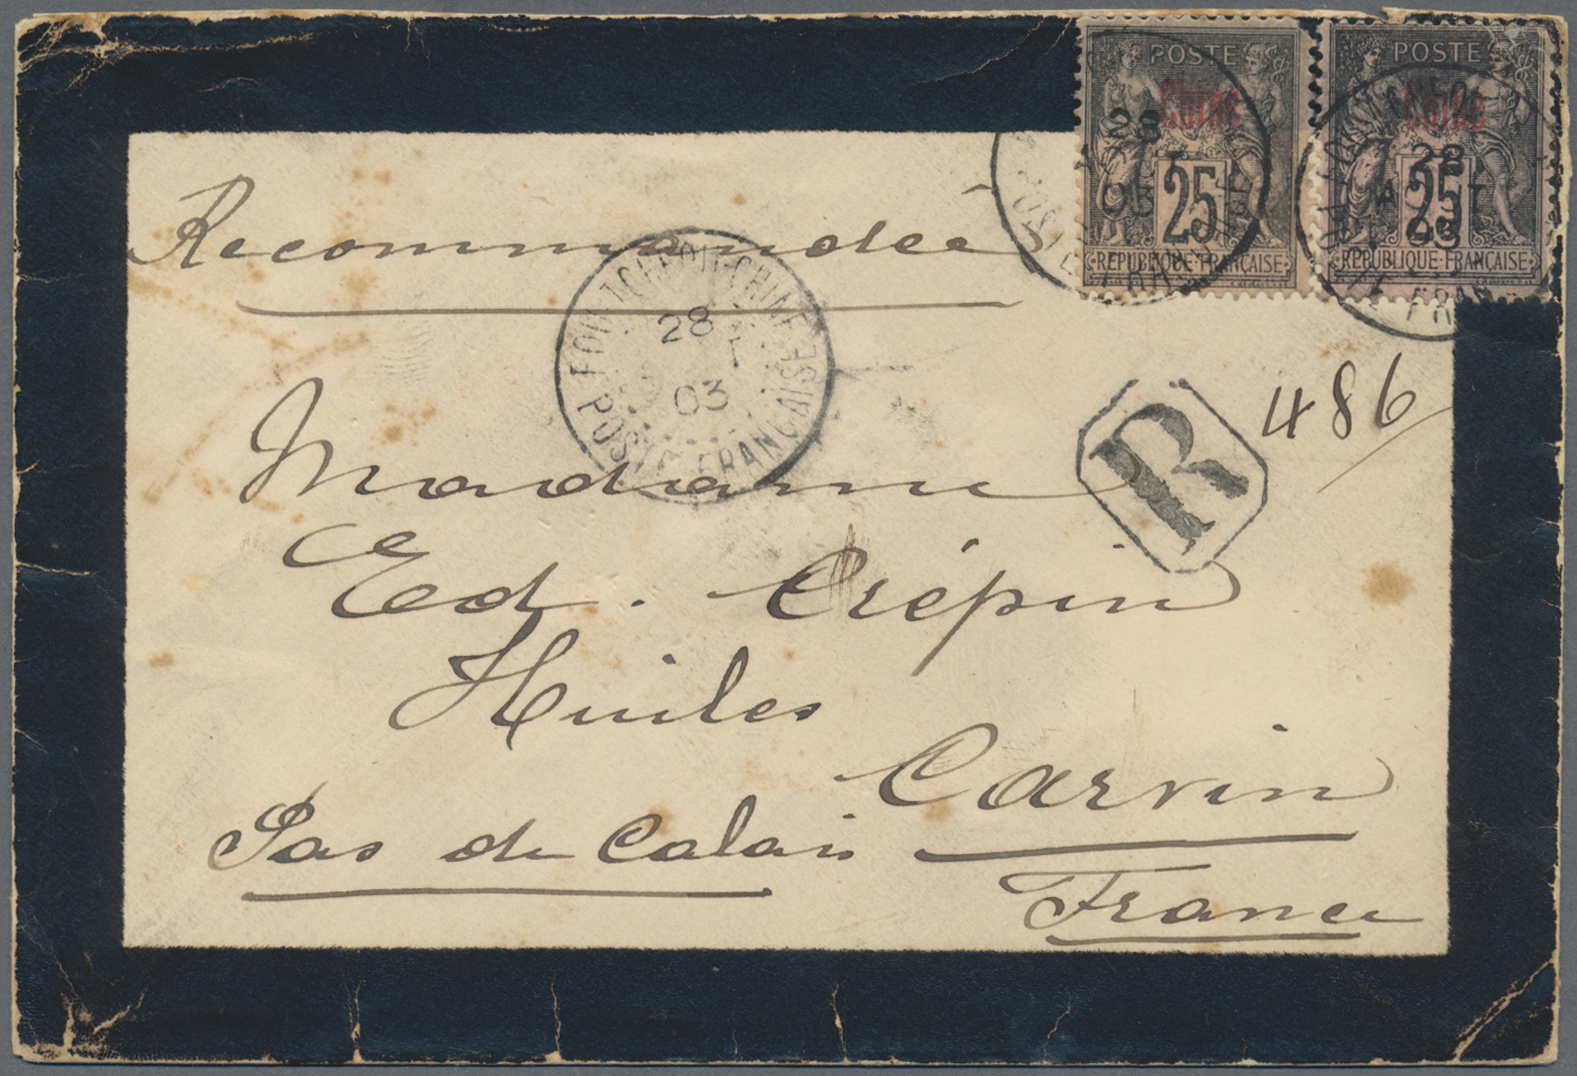 POSTE
Chine
25
REPUBLIQUE FRANÇAISE
POSTE
Chine
25
REPUBLIQUE FRANÇAISE
28
28
03
Recommandée
FOU-TCHEOU-CHINE
28
03
POSTE FRANÇAISE
R
486
Madame
Ed. Crépin
Huiles
Carvin
Pas de Calais
France